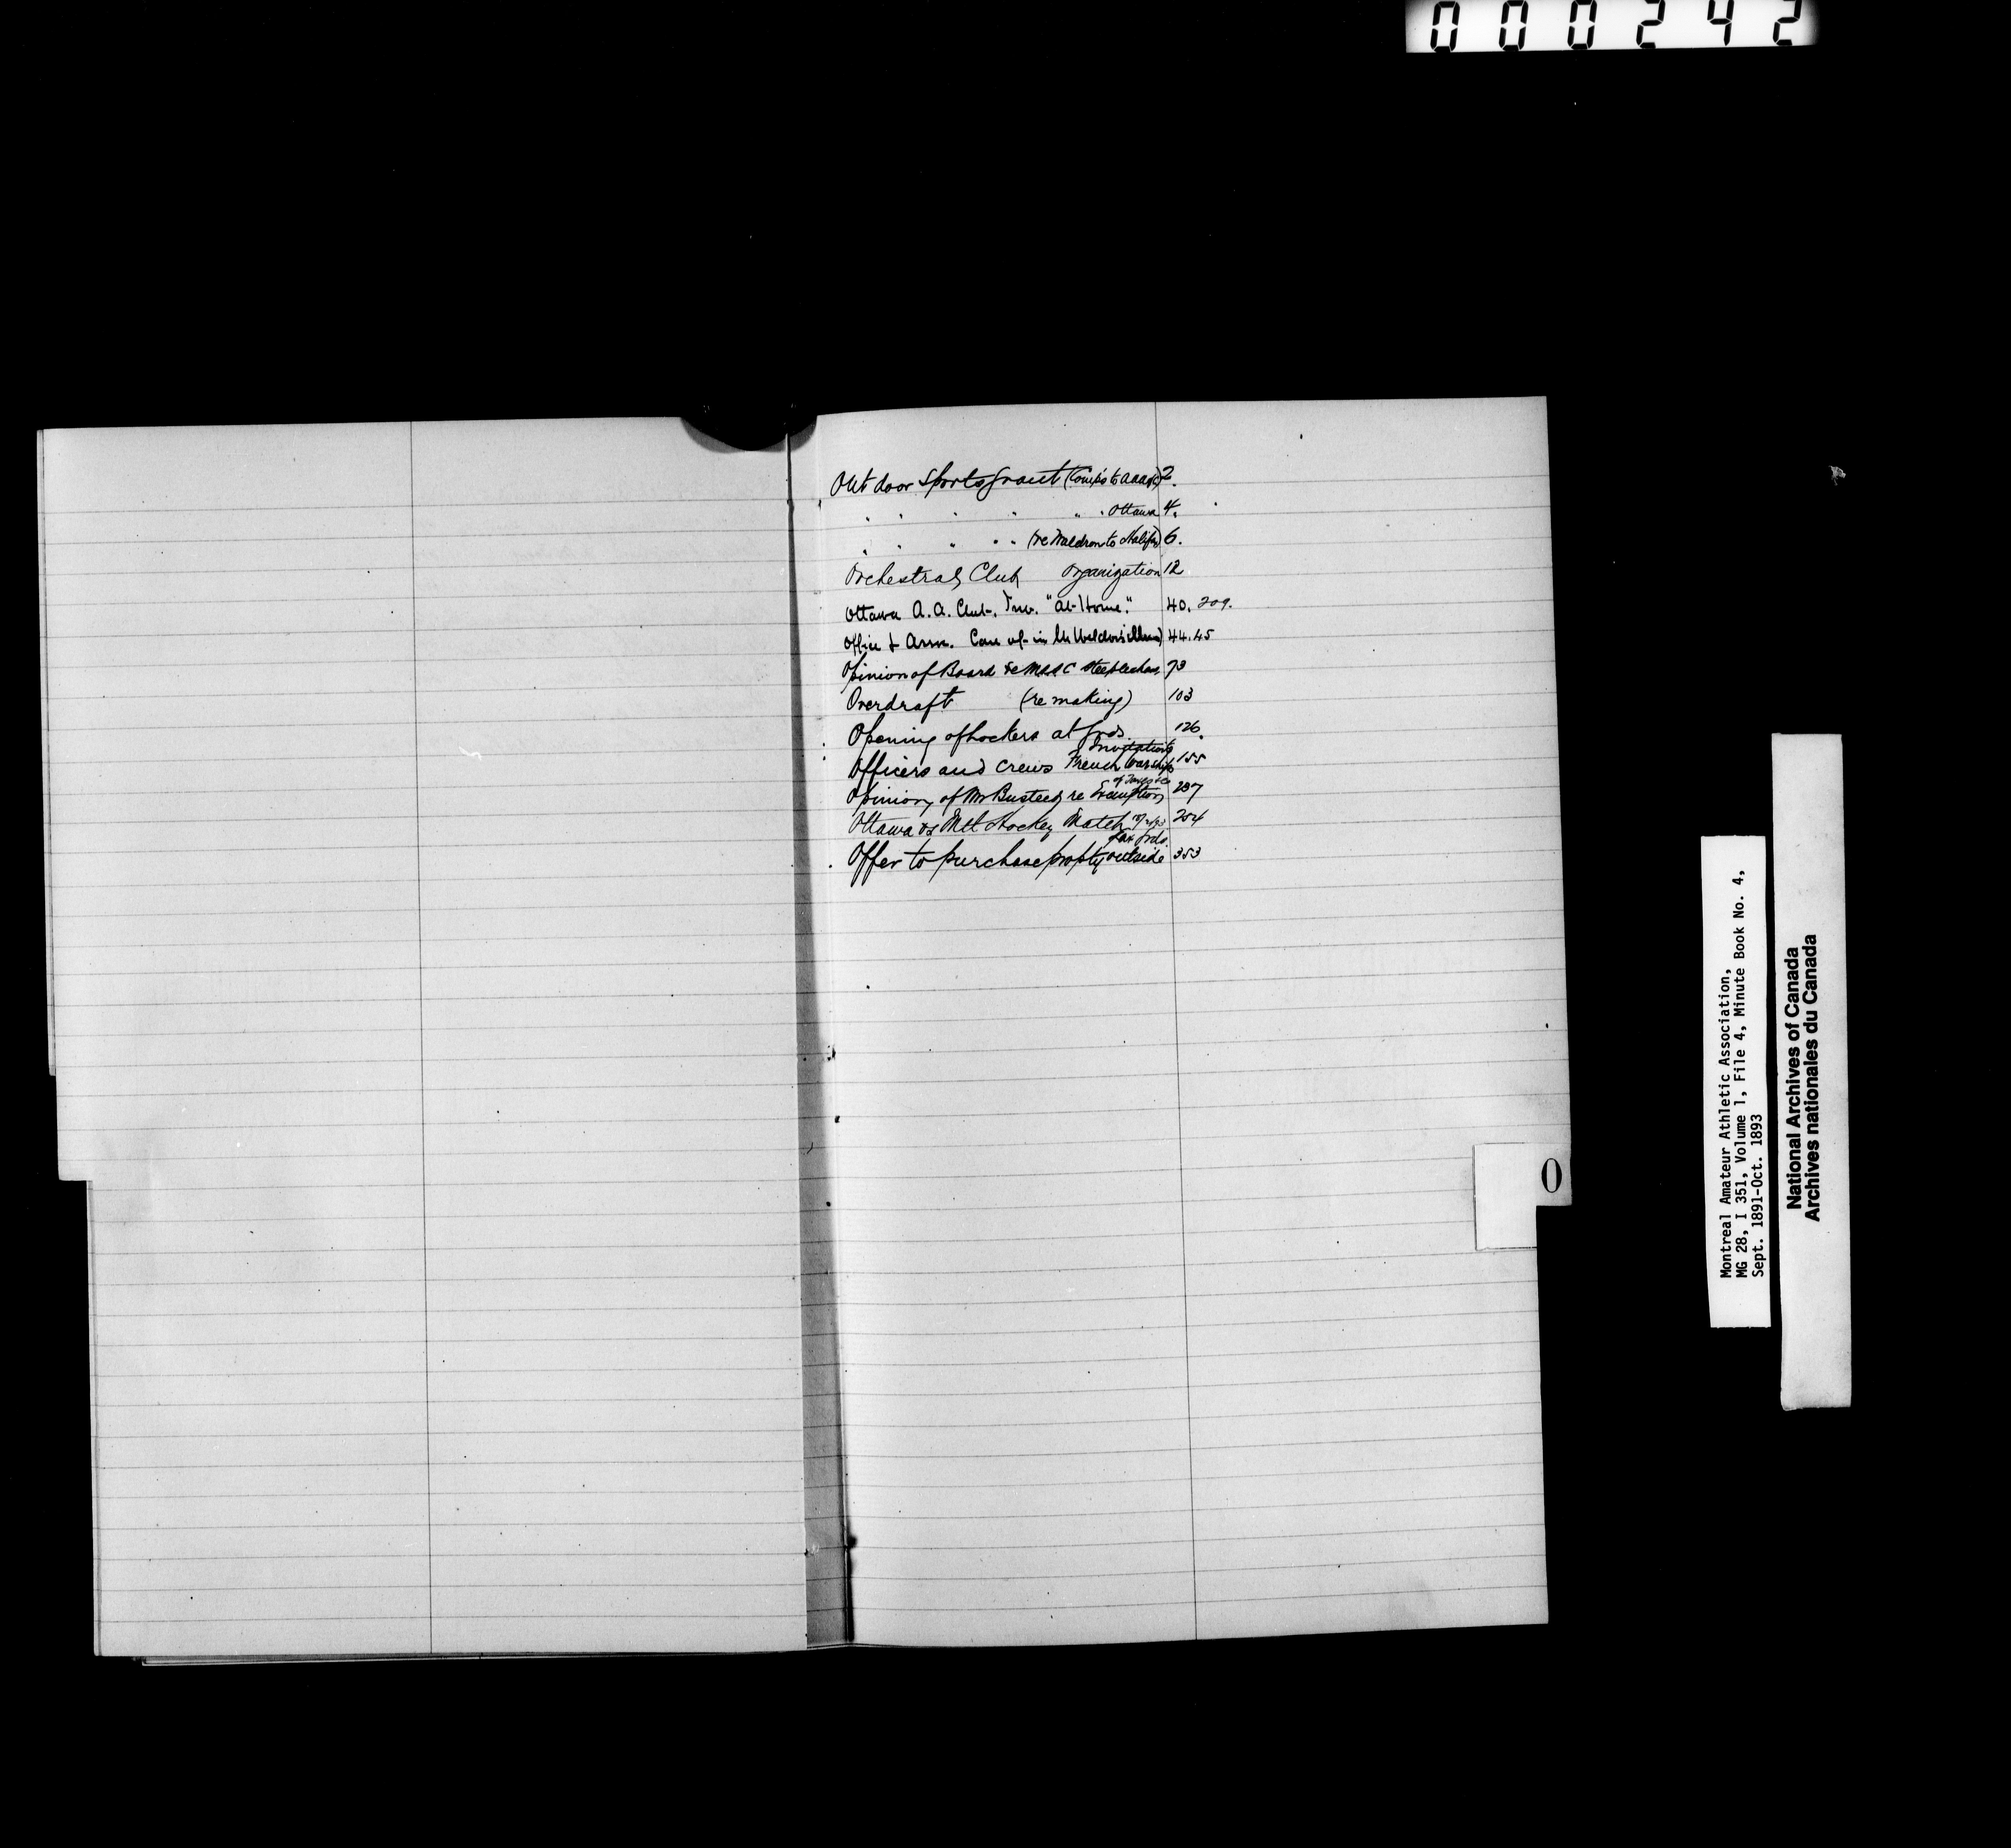 000242
Out door Sports Grant (Comp's to A.A.A. of C) 2.
" " " " " " Ottawa 4.
" " " " " (re Waldron to Halifax) 6.
Orchestral Club Organization 12
Ottawa A. A. Club. Inv. "At-Home." 40. 209.
Office & Arm. Care of in Mr Weldon's illness) 44.45
Opinion of Board re MAAC Steeplechase 73
Overdraft (re making) 103
Opening of Lockers at Grds. 126.
Invitations
Officers and Crews French Warships 155
of Taxes &c
Opinion of Mr Busteed re Exemption 237
Ottawa vs Mtl Hockey Match 254
Lax Grds.
Offer to purchase propty outside 353
O
Montreal Amateur Athletic Association,
MG 28, I 351, Volume 1, File 4, Minute Book No. 4,
Sept. 1891-Oct. 1893
National Archives of Canada
Archives nationales du Canada